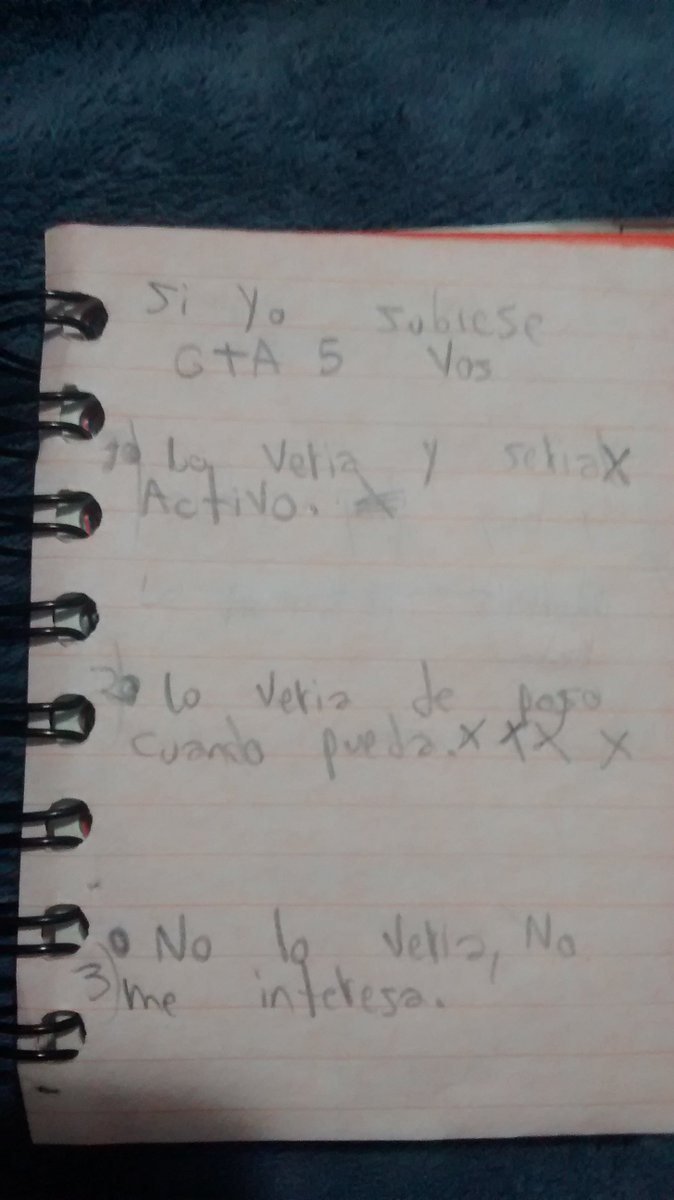 Si Yo subiese
GTA 5 Vos
1) Lo Veria y seriaX
Activo. X
2) Lo Veria de paso
cuando pueda.X X X X
No lo Veria, No
3) me interesa.